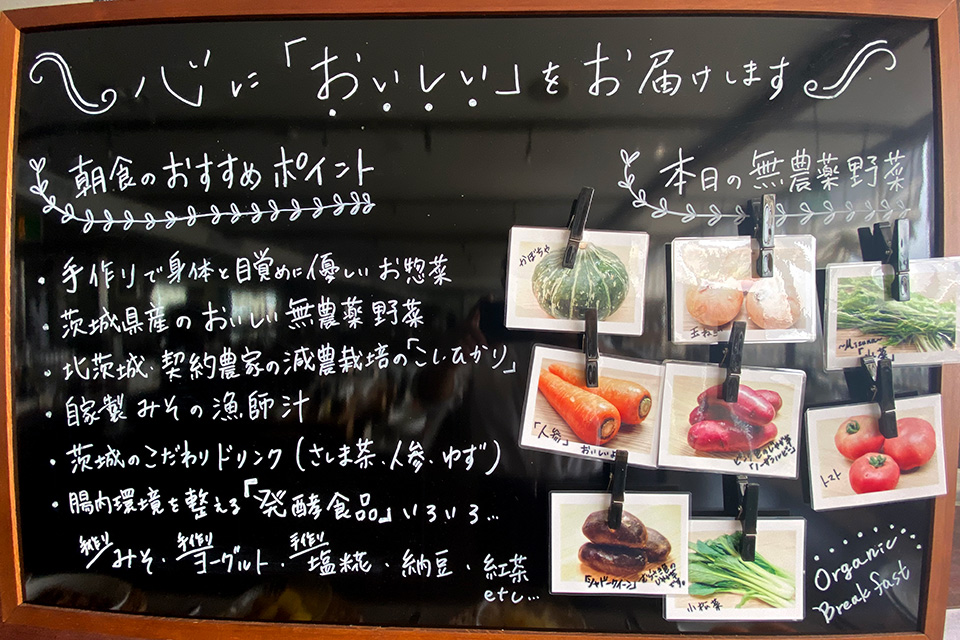 心に「おいしい」をお届けします
朝食のおすすめポイント
・手作りで身体と目覚めに優しいお惣菜
・茨城県産のおいしい無農薬野菜
・北茨城・契約農家の減農栽培の「こしひかり」
・自家製みその漁師汁
・茨城のこだわりドリンク(さしま茶、人参、ゆず)
・腸内環境を整える「発酵食品」いろいろ…
手作りみそ・手作りヨーグルト・手作り塩糀・納豆・紅茶
etc...
本日の無農薬野菜
かぼちゃ
玉ねぎ
~Mizuna~
「水菜」
「人参」
おいしいよ
「ノーザンルビー」
トマト
「シャドークイーン」
小松菜
Organic
Breakfast